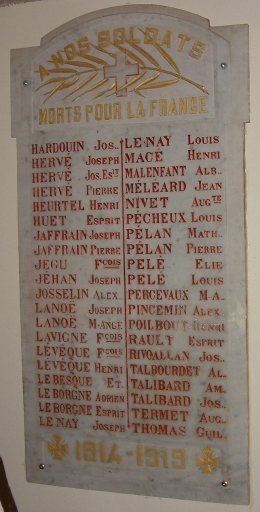 A NOS SOLDATS
MORTS POUR LA FRANCE
HARDOUIN Jos..
HERVÉ Joseph
HERVÉ Jos. Est
HERVÉ Pierre
HEURTEL Henri
HUET Esprit
JAFFRAIN Joseph
JAFFRAIN Pierre
JÉGU Fcois
JÉHAN Joseph
JOSSELIN Alex..
LANOË Joseph
LANOË
LAVIGNE Fcois
LÉVÊQUE Fcois
LÉVÊQUE Henri
LE BESQUE Et.
LE BORGNE Adrien
LE BORGNE Esprit
LE NAY Joseph
LE NAY Louis
MACÉ Henri
MALENFANT Alb..
MÉLÉARD Jean
NIVET Augte
PÉCHEUX Louis
PÉLAN Math..
PÉLAN Pierre
PELÉ Elie
PELÉ Louis
PERCEVAUX M A..
PINCEMIN Alex
POILBOUT Henri
RAULT Esprit
RIVOALLAN Jos..
TALBOURDET Al..
TALIBARD Am..
TALIBARD Jos..
TERMET Aug..
THOMAS Guil..
1914-1919